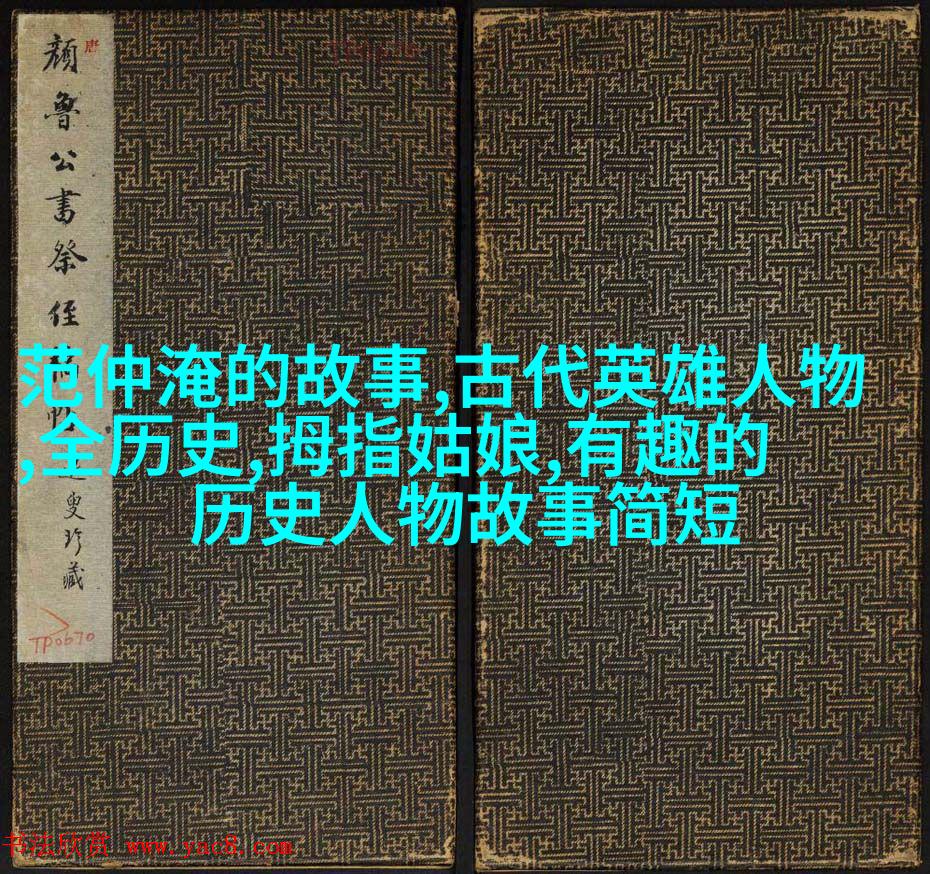 唐
颜鲁公书祭侄
叟珍藏
TP0670
范仲淹的故事,古代英雄人物
,全历史,拇指姑娘,有趣的
历史人物故事简短
书法欣赏 www.yac8.com